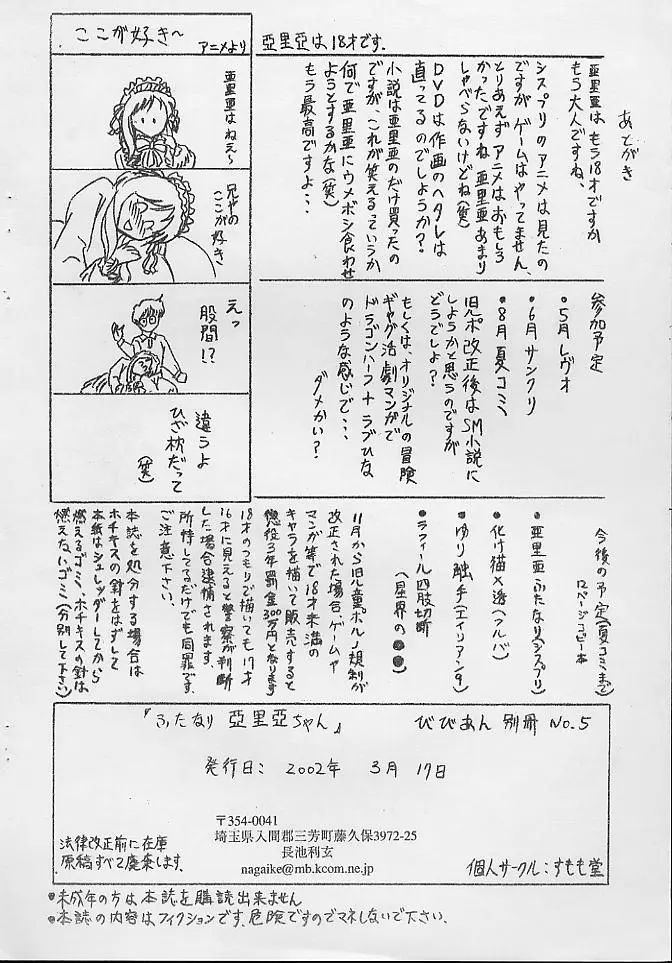 あとがき
亜里亜は、もう18才ですか
もう大人ですね、
シスプリのアニメは見たの
ですが、ゲームはやってません、
とりあえずアニメはおもしろ
かったですね 亜里亜あまり
しゃべらないけどね(笑)
DVDは作画のヘタレは
直ってるのでしょうか?
小説は亜里亜のだけ買ったの
ですが、これが笑えるっていうか
何で亜里亜にウメボシ食わせ
ようとするかな(笑)
もう最高ですよ・・・
亜里亜は18才です.
ここが好き〜
アニメより
亜里亜はねえ〜
兄やの
ここが好き、
えっ
股間!?
違うよ
ひざ枕だって
(笑)
参加予定
・5月レヴォ
・6月サンクリ
・8月夏コミ
児ポ改正後はSM小説に
しようかと思うのですが
どうでしょ?
もしくは、オリジナルの冒険
ギャグ活劇マンガで
ドラゴンハーフ+ラブひな
のような感じで・・・
ダメかい?
今後の予定(夏コミまで)
12ページコピー本
●亜里亜ふたなり(シスプリ)
●化け猫×透(フルバ)
●ゆり触手(エイリアン9)
●ラフィール四肢切断
(星界の●●)
11月から旧児童ポルノ規制が
改正された場合、ゲームや
マンガ等で18才未満の
キャラを描いて販売すると
懲役3年罰金300万円となります
18才のつもりで描いても17才
16才に見えると警察が判断
した場合逮捕されます。
所持してるだけでも同罪です、
ご注意下さい。
本誌を処分する場合は
ホチキスの針をはずして
本紙はシュレッダーしてから
燃えるゴミ、ホチキスの針は
燃えないゴミ(分別して下さい)
『ふたなり 亜里亜ちゃん』
びびあん 別冊 No.5
発行日: 2002年 3月 17日
〒354-0041
埼玉県入間郡三芳町藤久保3972-25
長池利玄
nagaike@mb.kcom.ne.jp
法律改正前に在庫
原稿すべて廃棄します.
個人サークル:すもも堂
●未成年の方は本誌を購読出来ません
●本誌の内容はフィクションです、危険ですのでマネしないで下さい.